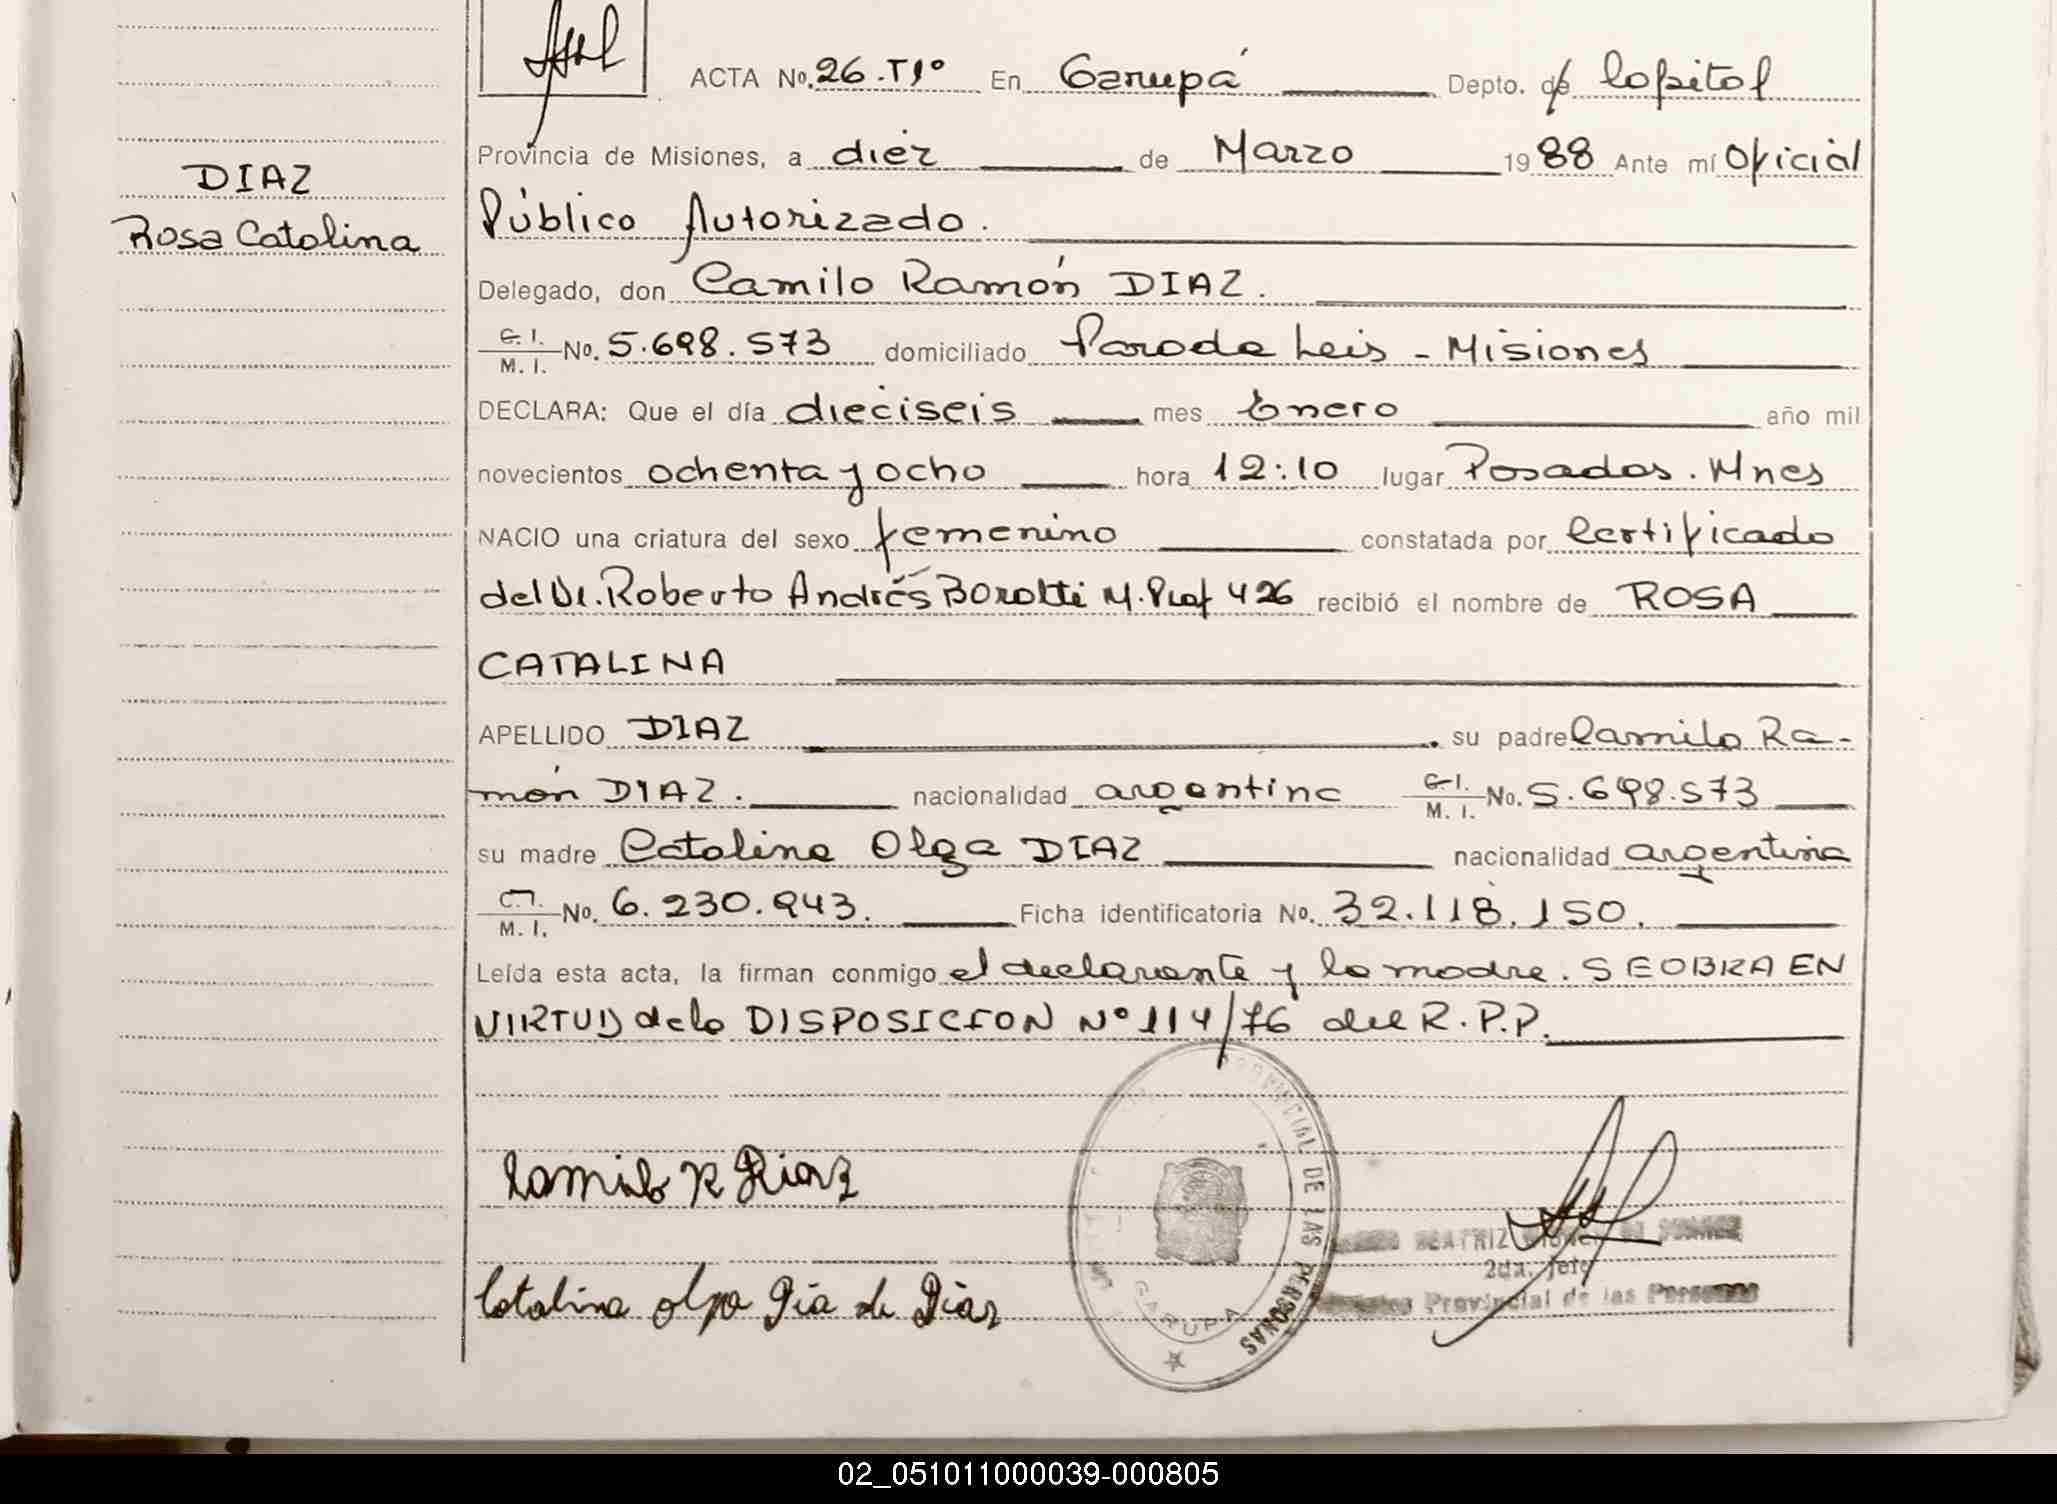 ACTA No. 26.T1º En Garupá Depto. de Capital
DIAZ
Rosa Catalina
Provincia de Misiones, a diez de Marzo 1988 Ante mí Oficial
Público Autorizado.
Delegado, don Camilo Ramón DIAZ.
C. I. / M. I. No. 5.698.573 domiciliado Parada Leis - Misiones
DECLARA: Que el día dieciseis mes Enero año mil
novecientos ochenta y ocho hora 12:10 lugar Posadas. Mnes
NACIO una criatura del sexo femenino constatada por Certificado
del Dr. Roberto Andrés Borotti M. Prof 426 recibió el nombre de ROSA
CATALINA
APELLIDO DIAZ su padre Camilo Ra-
món DIAZ. nacionalidad argentina C. I. / M. I. No. 5.698.573
su madre Catalina Olga DIAZ nacionalidad argentina
C. I. / M. I. No. 6.230.943. Ficha identificatoria No. 32.118.150.
Leída esta acta, la firman conmigo el declarante y la madre. SE OBRA EN
VIRTUD de la DISPOSICION Nº 114/76 del R.P.P.
Camilo R Diaz
Catalina olga Dia de Diaz
PROVINCIAL DE LAS PERSONAS
GARUPA
BEATRIZ
2da. Jefe
Provincial de las Personas
02_051011000039-000805